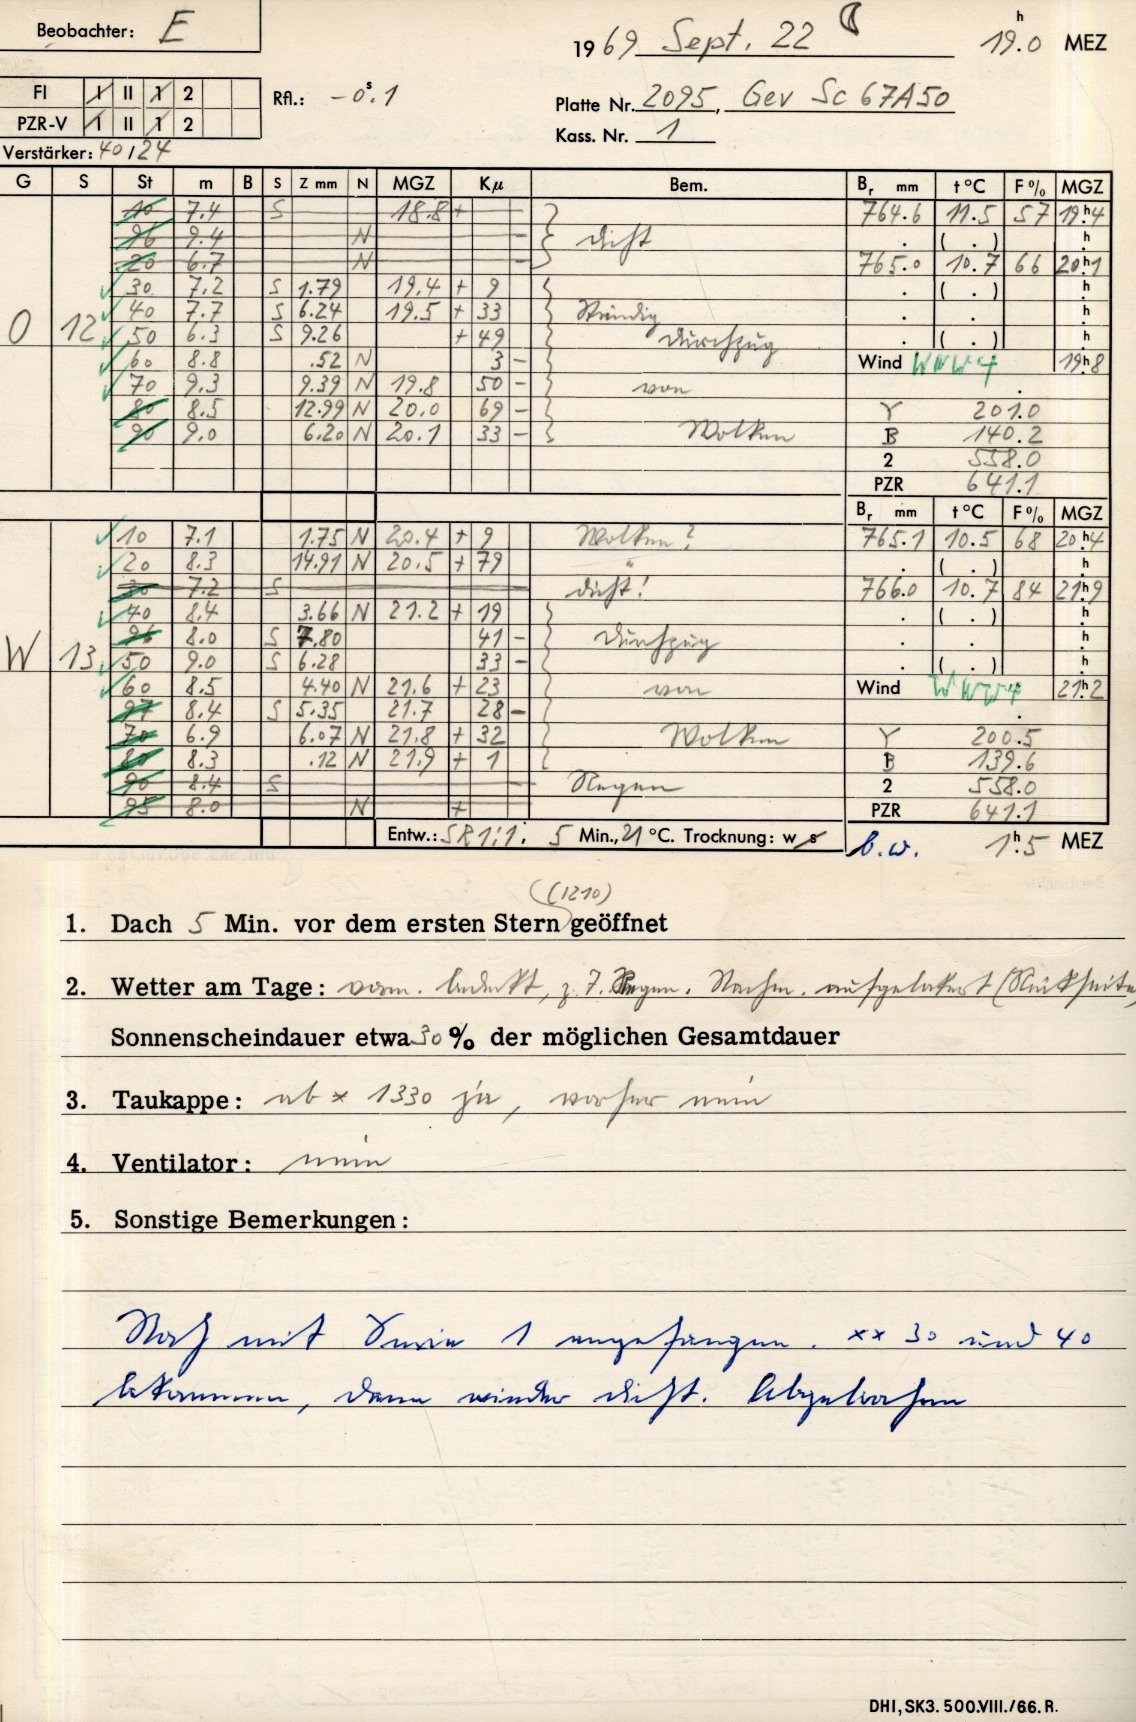 Beobachter: E
1969 Sept. 22 19.0 h MEZ
FI I II 1 2
Rfl.: -0.s1
Platte Nr. 2095, Gev Sc 67A50
PZR-V I II 1 2
Kass. Nr. 1
Verstärker: 40/24
G S St m B S Z mm N MGZ Kμ Bem. Br mm t °C F % MGZ
10 7.4 S 18.8 + - 764.6 11.5 57 19h4
96 9.4 N - dicht . ( . ) h
20 6.7 N - 765.0 10.7 66 20h1
30 7.2 S 1.79 19.4 + 9 . ( . ) h
40 7.7 S 6.24 19.5 + 33 Ständig . . h
O 12 50 6.3 S 9.26 + 49 Durchzug . ( . ) h
60 8.8 .52 N 3 - Wind WNW4 19h8
70 9.3 9.39 N 19.8 50 - von .
80 8.5 12.99 N 20.0 69 - Y 201.0
90 9.0 6.20 N 20.1 33 - Wolken B 140.2
2 558.0
PZR 641.1
Br mm t °C F % MGZ
10 7.1 1.75 N 20.4 + 9 Wolken? 765.1 10.5 68 20h4
20 8.3 14.91 N 20.5 + 79 " . ( . ) h
30 7.2 S dicht! 766.0 10.7 84 21h9
40 8.4 3.66 N 21.2 + 19 . ( . ) h
96 8.0 S 7.80 41 - Durchzug . . h
W 13 50 9.0 S 6.28 33 - . ( . ) h
60 8.5 4.40 N 21.6 + 23 von Wind WNW4 21h2
97 8.4 S 5.35 21.7 28 - .
70 6.9 6.07 N 21.8 + 32 Wolken Y 200.5
80 8.3 .12 N 21.9 + 1 B 139.6
90 8.4 S Regen 2 558.0
95 8.0 N + PZR 641.1
Entw.: SR 1:1; 5 Min., 21 °C. Trocknung: w s b.w. 1h.5 MEZ
(1210)
1. Dach 5 Min. vor dem ersten Stern geöffnet
2. Wetter am Tage: vorm. bedeckt, z.T. Regen. Nachm. aufgelockert (Rückseite
Sonnenscheindauer etwa 30 % der möglichen Gesamtdauer
3. Taukappe: ab * 1330 ja, vorher nein
4. Ventilator: nein
5. Sonstige Bemerkungen:
Noch mit Serie 1 angefangen. ×× 30 und 40
bekommen, dann wieder dicht. Abgebrochen
DHI, SK3. 500.VIII./66. R.